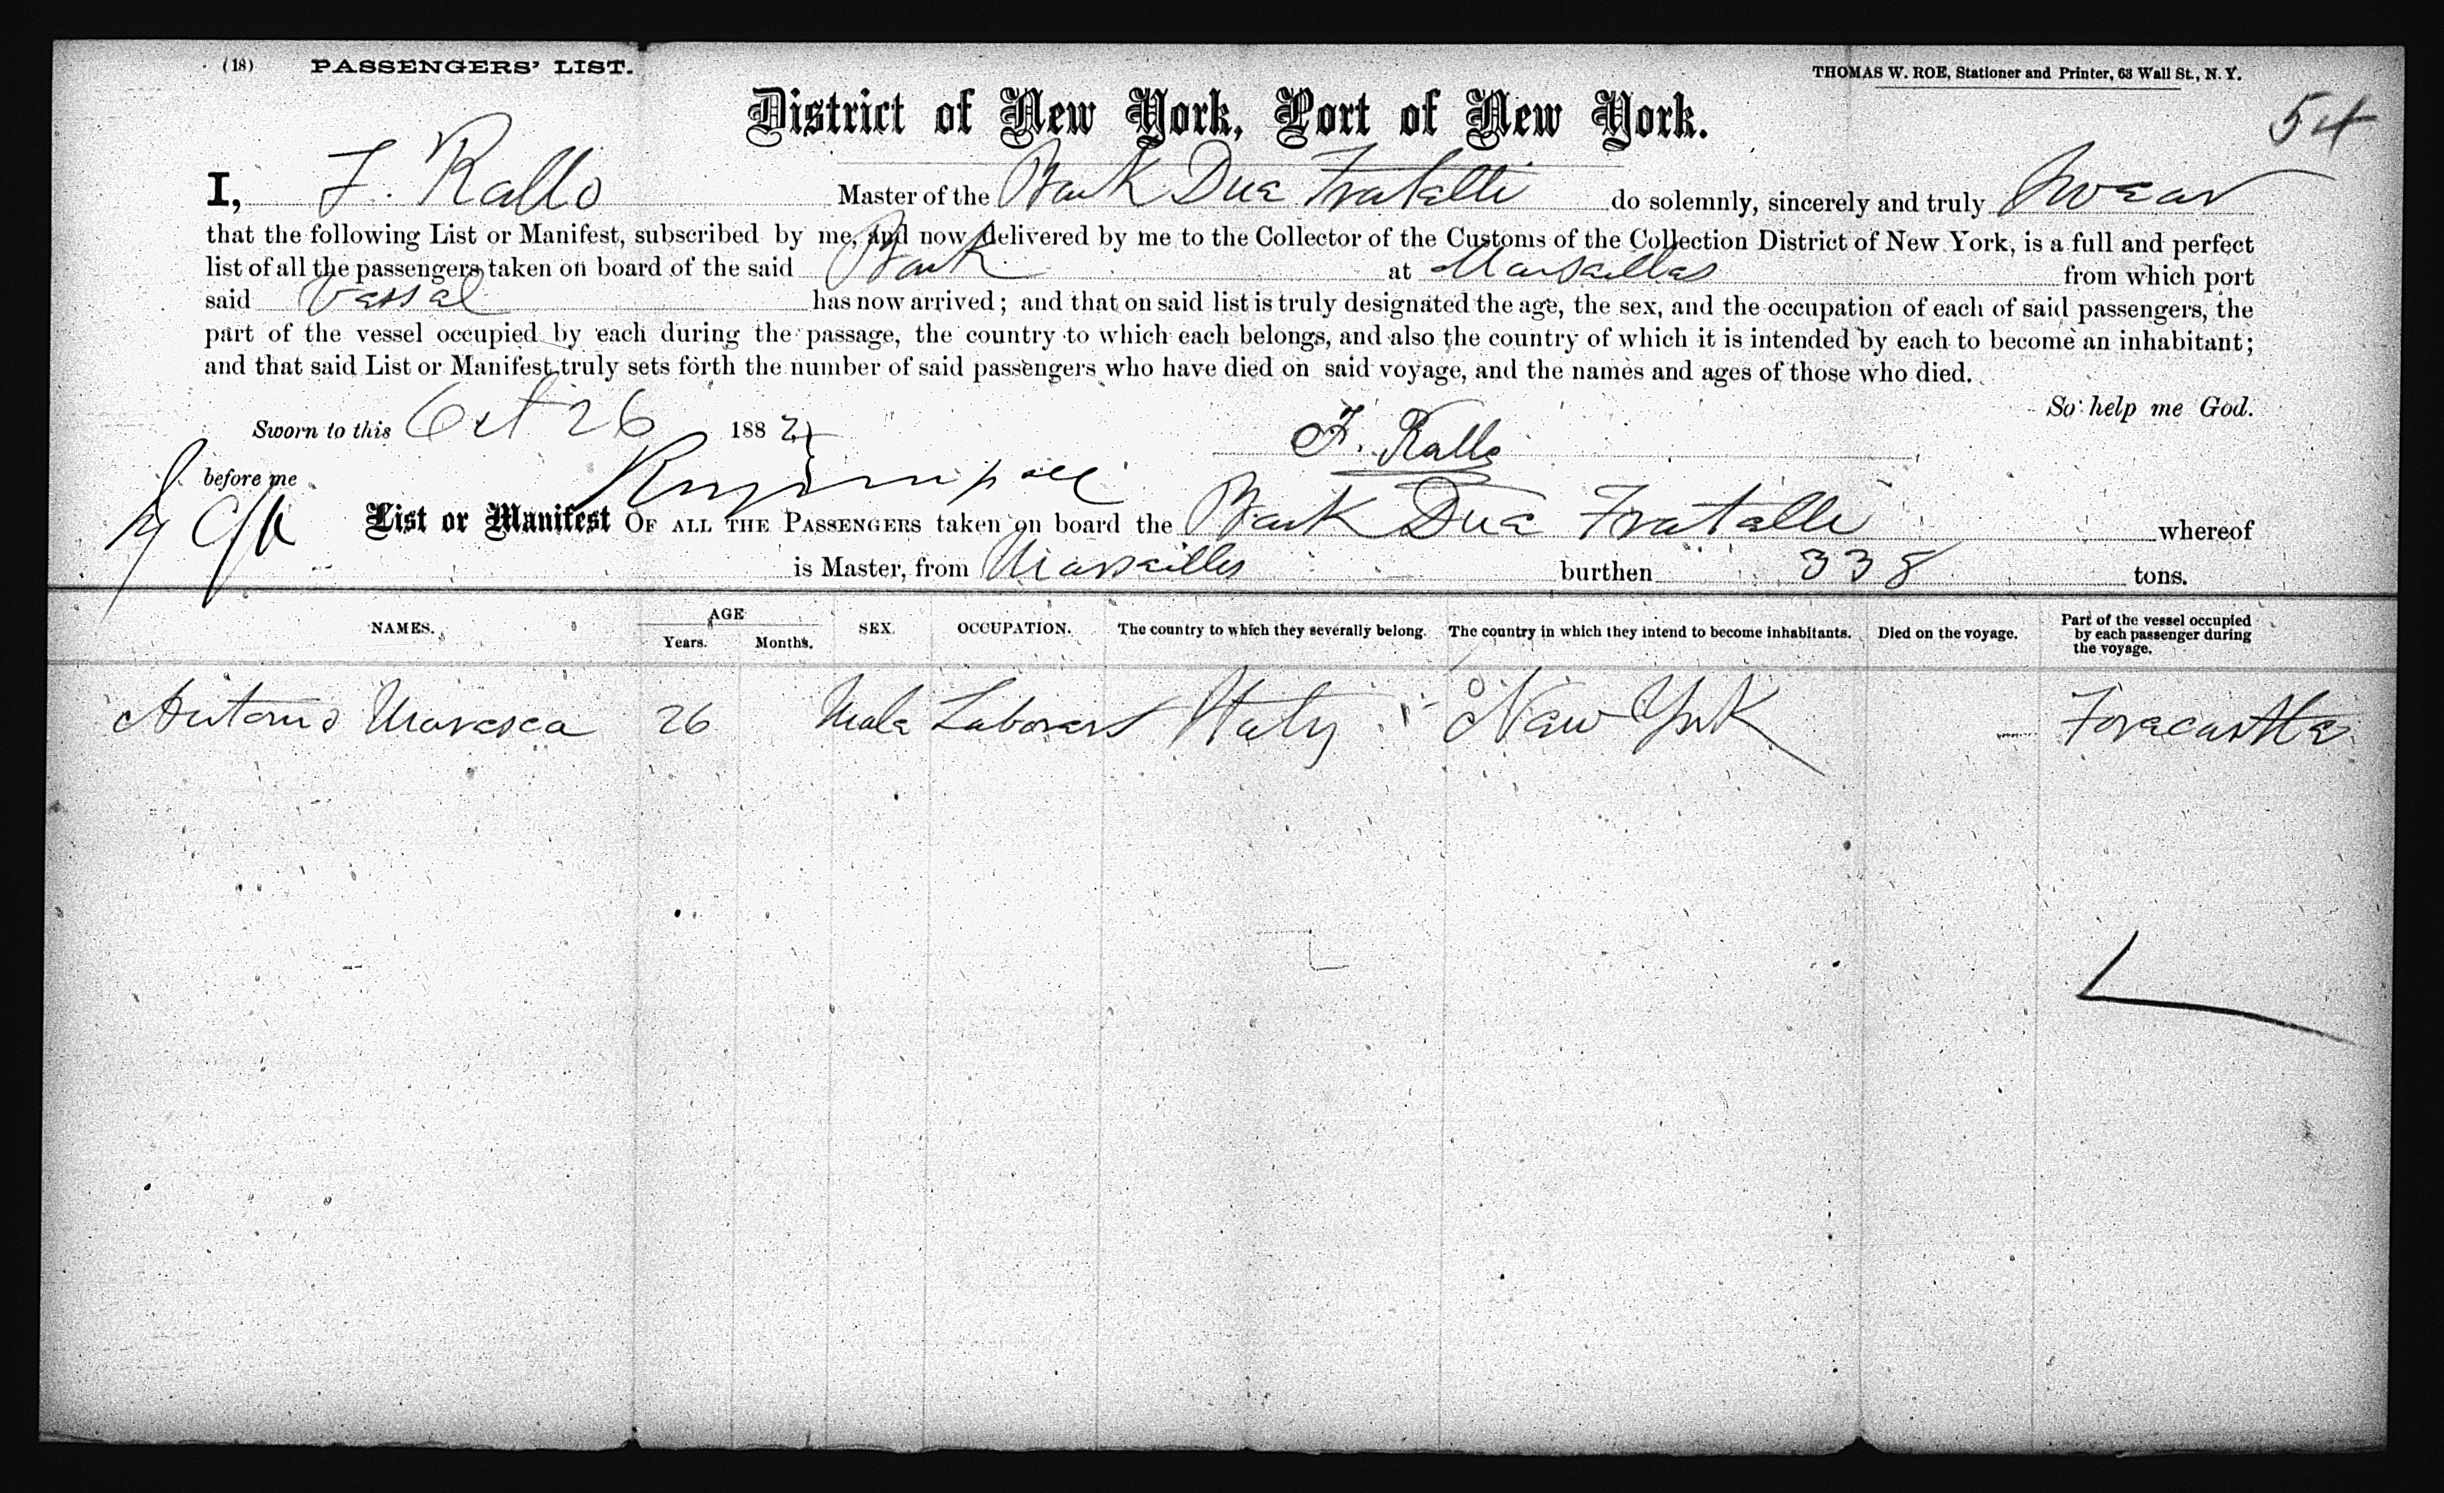 (18) PASSENGERS' LIST.
THOMAS W. ROE, Stationer and Printer, 63 Wall St., N. Y.
54
District of New York, Port of New York.
I, F. Rallo Master of the Bark Due Fratelli do solemnly, sincerely and truly Swear
that the following List or Manifest, subscribed by me, and now delivered by me to the Collector of the Customs of the Collection District of New York, is a full and perfect
list of all the passengers taken on board of the said Bark at Marseilles from which port
said Vessel has now arrived; and that on said list is truly designated the age, the sex, and the occupation of each of said passengers, the
part of the vessel occupied by each during the passage, the country to which each belongs, and also the country of which it is intended by each to become an inhabitant;
and that said List or Manifest truly sets forth the number of said passengers who have died on said voyage, and the names and ages of those who died.
So help me God.
Sworn to this Oct 26 1882
F. Rallo
before me
List or Manifest OF ALL THE PASSENGERS taken on board the Bark Due Fratelli whereof
is Master, from Marseilles burthen 338 tons.
NAMES. AGE Years. Months. SEX. OCCUPATION. The country to which they severally belong. The country in which they intend to become inhabitants. Died on the voyage. Part of the vessel occupied by each passenger during the voyage.
Antonio Maresca 26 Male Laborer Italy New York Forecastle